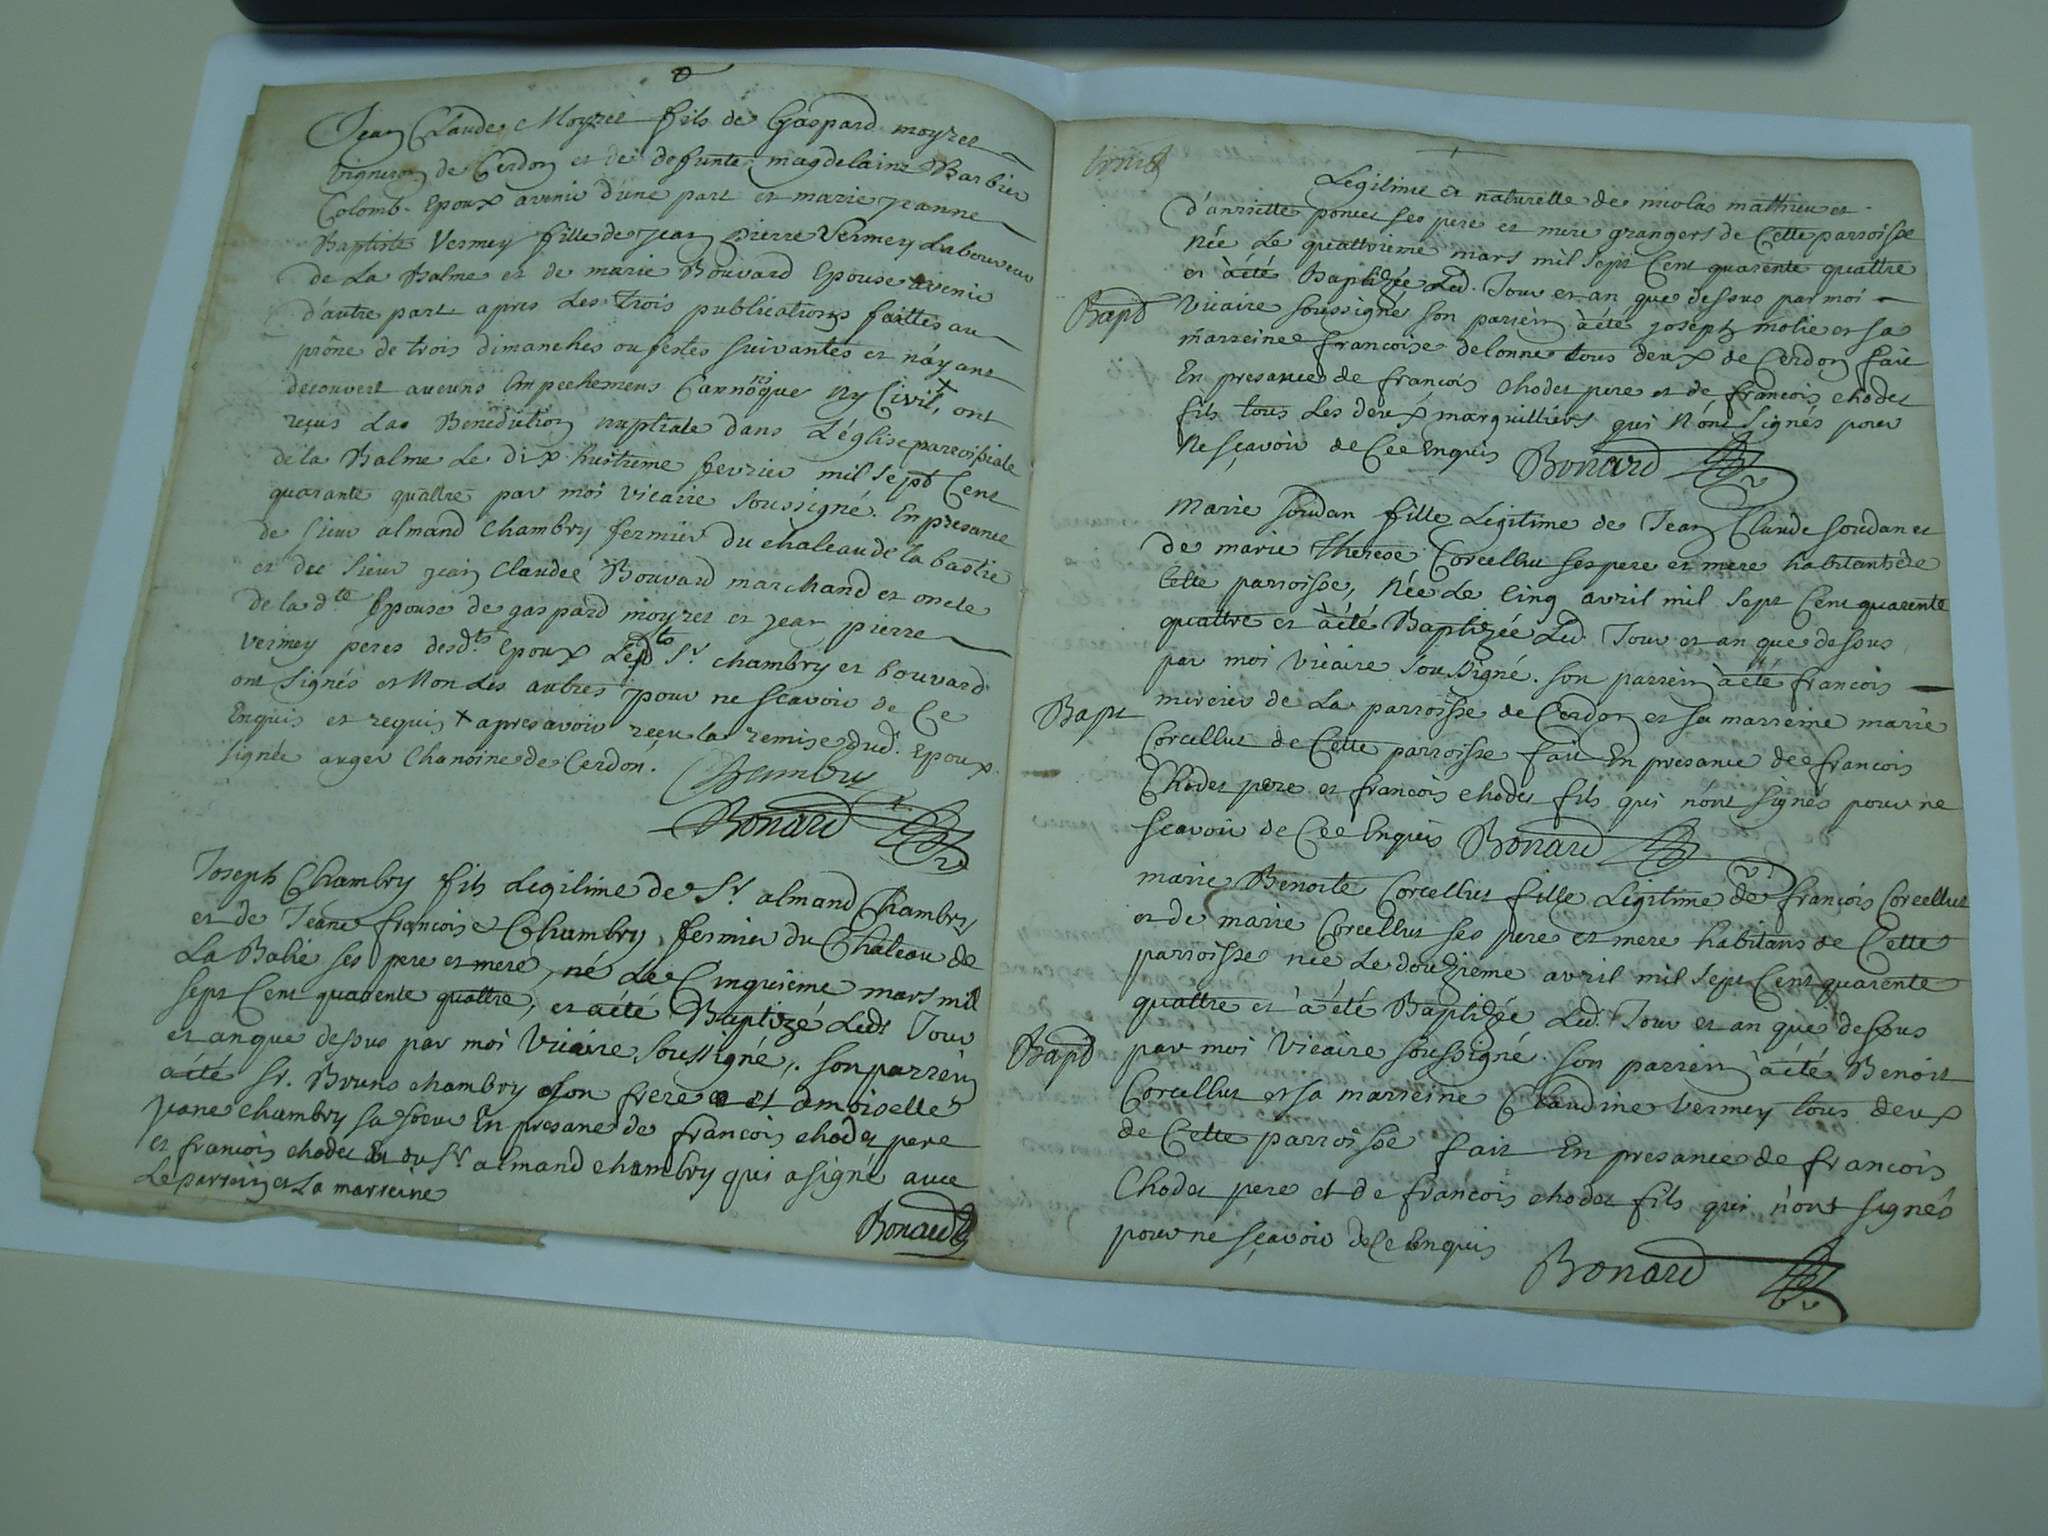 Jean Claude Moyret fils de Gaspard moyret
vigneron de Cerdon et de defunte magdelaine Barbier
Colomb. Epoux avenir d'une part et marie jeanne
Baptiste Vermey fille de jean pierre Vermey Laboureur
de La Balme et de marie Bouvard Epouse avenir
d'autre part apres Les trois publications faittes au
prône de trois dimanches ou festes suivantes et n'ayant
decouvert aucuns Empechemens Cannonique ny Civil, + ont
reçus La Benediction nuptiale dans L'église parroissiale
de la Balme Le dix huitieme fevrier mil sept Cent
quarante quattre par moi vicaire soussigné. En presance
de sieur almand Chambry fermier du chateau de la bastie
et de sieur jean Claude Bouvard marchand et oncle
de la dte Epouse de gaspard moyret et jean pierre
vermey peres desdts Epoux Lesdts Sr. chambry et bouvard
ont signés et Non Les autres pour ne scavoir de Ce
Enquis et requis + apres avoir reçu la remise dud. Epoux
signée auger Chanoine de Cerdon. Chambry
Bonard
Joseph Chambry fils Legitime de Sr. almand Chambry
et de Jeane francoise Chambry, fermier du Chateau de
La Batie ses pere et mere, né Le Cinquieme mars mil
sept Cent quarente quattre, et a été Baptizé Ledt Jour
et an que dessus par moi Vicaire soussigné. son parrein
a été Sr. Bruno chambry son frere et amoiselle
jeane chambry sa soeur En presane de francois chodet pere
et francois chodet et du Sr. almand chambry qui a signé avec
Le parrein et La marreine
Bonard
Legitime et naturelle de nicolas mathieu et
d'anriette poncet ses pere et mere grangers de Cette parroisse
née Le quattrieme mars mil sept Cent quarente quattre
et à été Baptizée Led. Jour et an que dessus par moi
Bapt
vicaire soussigné son parrein à été joseph molie et sa
marreine francoise delonne tous deux de Cerdon fait
En presance de françois chodet pere et de francois chodet
fils tous Les deux marguilliers qui N'ont signés pour
Ne sçavoir de Cee Enquis Bonard
Marie soudan fille Legitime de Jean Claude soudan et
de marie therese Corcellut ses pere et mere habitants de
Cette parroisse, Née Le Cinq avril mil sept Cent quarente
quattre et à été Baptizée Led. Jour et an que dessus
par moi vicaire soussigné. son parrein à été francois
Bapt
mercier de La parroisse de Cerdon et sa marreine marie
Corcellut de Cette parroisse fait En presance de francois
Chodet pere et francois chodet fils qui n'ont signés pour ne
scavoir de Cee Enquis Bonard
marie Benoite Corcellut fille Legitime de françois Corcellut
et de marie Corcellut ses pere et mere habitans de Cette
parroisse née Le douzieme avril mil sept Cent quarente
quattre et à été Baptizée Led. Jour et an que dessus
Bapt
par moi Vicaire soussigné son parrein à été Benoit
Corcellut et sa marreine Claudine Vermey tous deux
de Cette parroisse fait En presance de francois
Chodet pere et de francois chodet fils qui n'ont signés
pour ne sçavoir de Ce Enquis
Bonard